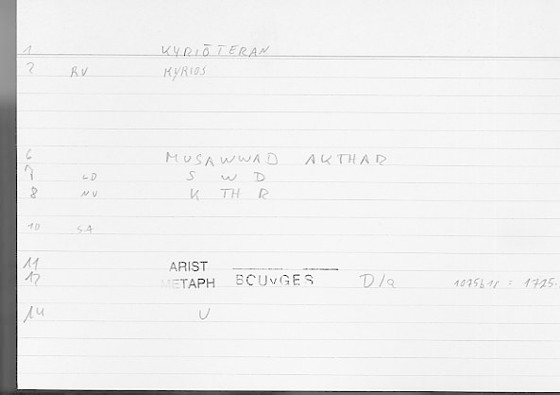 1 KYRIŌTERAN
2 RV KYRIOS
6 MUSAWWAD AKTHAR
7 LD S W D
8 NV K TH R
10 SA
11 ARIST
12 METAPH BOUYGES D/a 1075b18 : 1725.
14 U